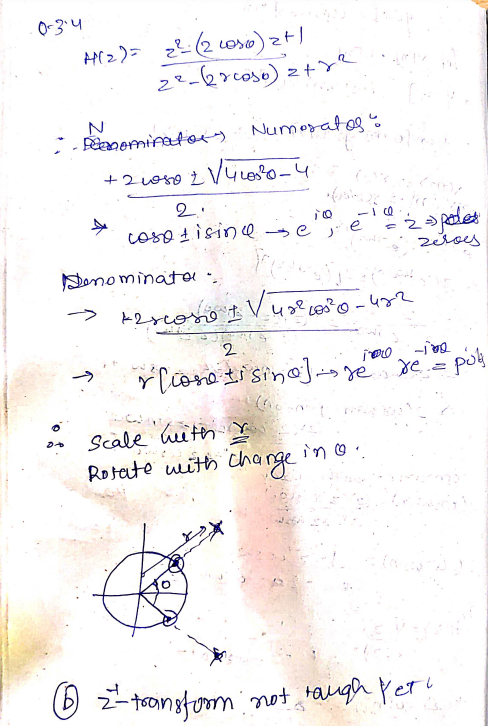 Q-3.4
H(z) = z² - (2 cosθ) z + 1 / z² - (2r cosθ) z + r²
∴ N Numerator :
+ 2 cosθ ± √4cos²θ - 4 / 2
→ cosθ ± i sinθ → e^iθ, e^-iθ = z ⇒ zeroes
Denominator :
→ +2rcosθ ± √4r²cos²θ - 4r² / 2
→ r[cosθ ± i sinθ] → re^iθ re^-iθ = poles
∴ Scale with r
Rotate with change in θ.
r
θ
(b) z⁻¹-transform not taugh yet